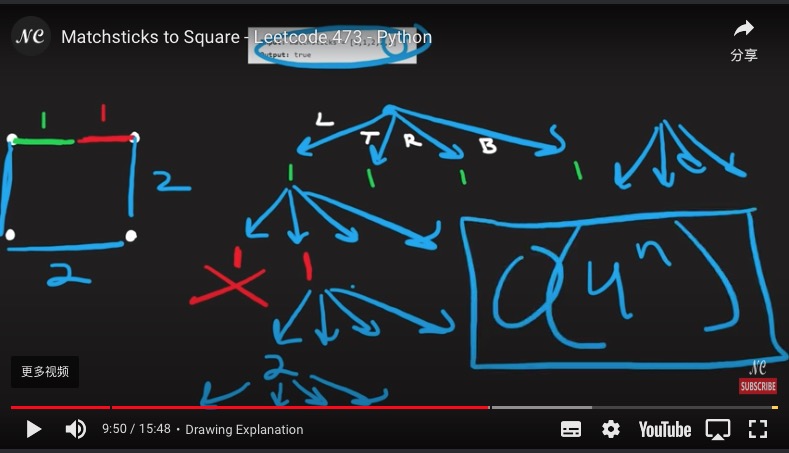 NC Matchsticks to Square - Leetcode 473 - Python
分享
Output: true
1 1
L T R B
1 1 1 1
2
1 1
2
O(4ⁿ)
2
更多视频
NC
SUBSCRIBE
9:50 / 15:48 • Drawing Explanation
YouTube